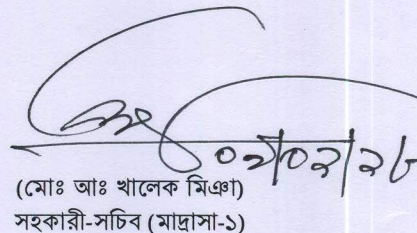 ০২|০২|২৮
(মোঃ আঃ খালেক মিঞা)
সহকারী-সচিব (মাদ্রাসা-১)